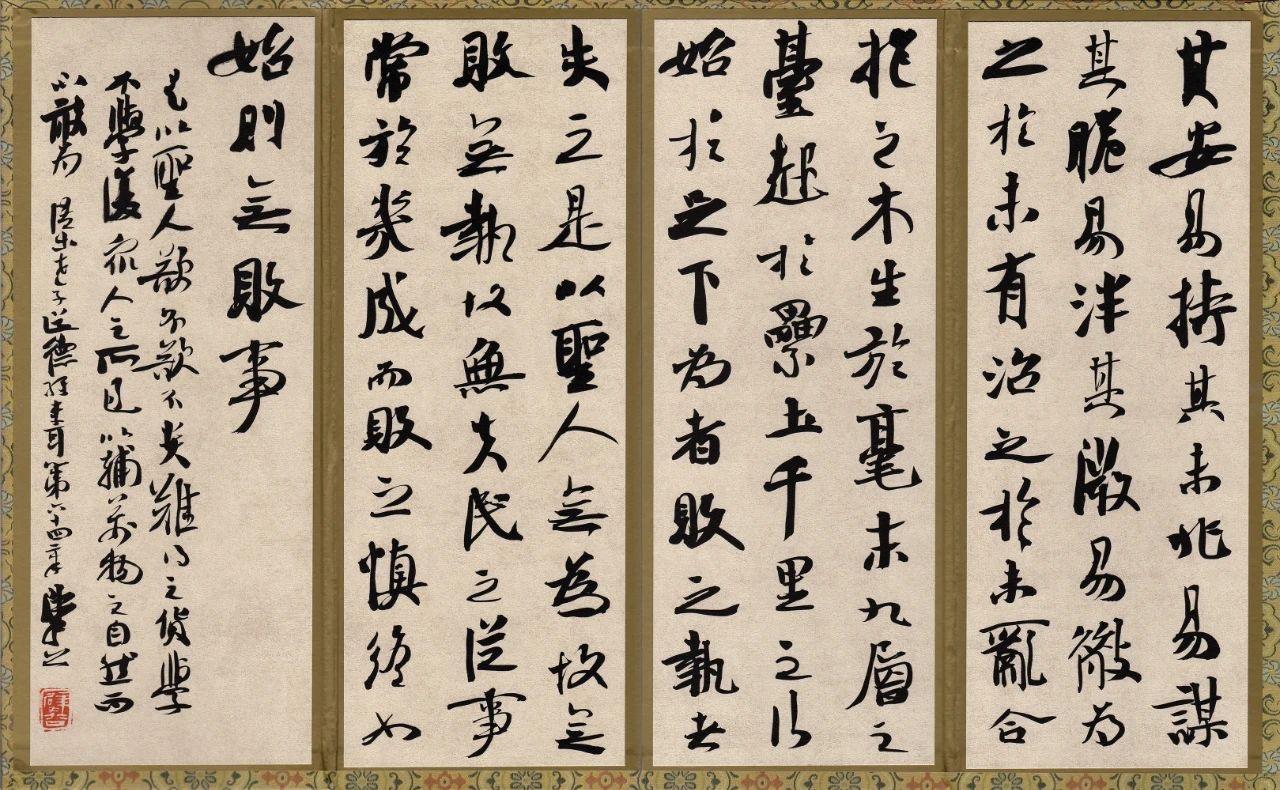 其安易持其未兆易謀
其脆易泮其微易散為
之於未有治之於未亂合
抱之木生於毫末九層之
臺起於纍土千里之行
始於足下為者敗之執者
失之是以聖人無為故無
敗無執故無失民之從事
常於幾成而敗之慎終如
始則無敗事
是以聖人欲不欲不貴難得之貨學
不學復眾人之所過以輔萬物之自然而
不敢為 老子道德經第六十四章